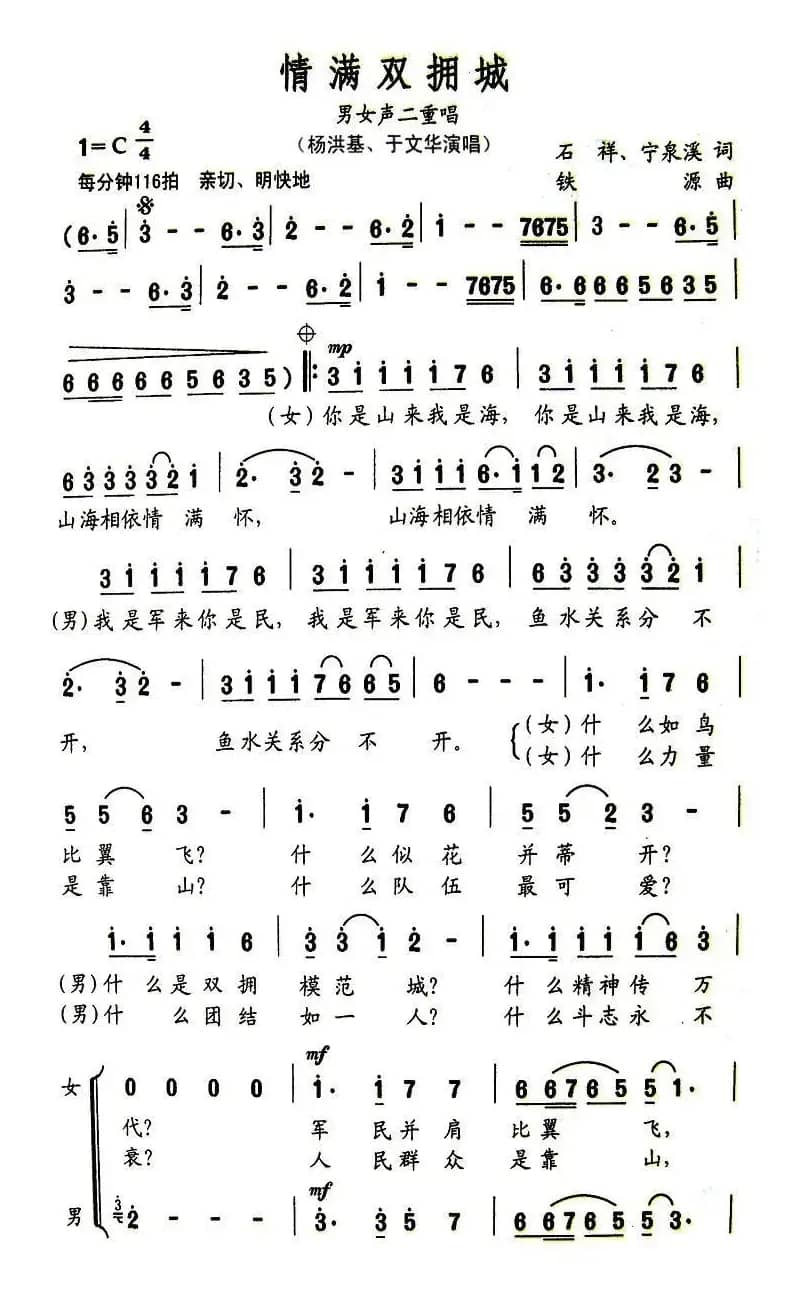 情满双拥城
男女声二重唱
(杨洪基、于文华演唱)
1=C 4/4
石 祥、宁泉溪 词
每分钟116拍 亲切、明快地
铁 源 曲
(6·5 | 3 - - 6·3 | 2 - - 6·2 | 1 - - 7675 | 3 - - 6·5 |
3 - - 6·3 | 2 - - 6·2 | 1 - - 7675 | 6·6 6 6 5 6 3 5 |
mp
6 6 6 6 6 5 6 3 5) ‖: 3 1 1 1 1 7 6 | 3 1 1 1 1 7 6 |
(女)你是山来我是海, 你是山来我是海,
6 3 3 3 3 2 1 | 2· 3 2 - | 3 1 1 1 6·1 1 2 | 3· 2 3 - |
山海相依情 满 怀, 山海相依情 满 怀。
3 1 1 1 1 7 6 | 3 1 1 1 1 7 6 | 6 3 3 3 3 2 1 |
(男)我是军来你是民, 我是军来你是民, 鱼水关系分 不
2· 3 2 - | 3 1 1 1 7 6 6 5 | 6 - - - | 1· 1 7 6 |
开, 鱼水关系分 不 开。 (女)什 么如鸟
(女)什 么力量
5 5 6 3 - | 1· 1 7 6 | 5 5 2 3 - |
比翼 飞? 什 么似花 并蒂 开?
是靠 山? 什 么队伍 最可 爱?
1· 1 1 1 6 | 3 3 1 2 - | 1· 1 1 1 1 6 3 |
(男)什 么是双拥 模范 城? 什么精神传 万
(男)什 么团结 如一 人? 什么斗志永 不
mf
女 0 0 0 0 | 1· 1 7 7 | 6 6 7 6 5 5 1· |
代? 军 民并肩 比翼 飞,
衰? 人 民群众 是靠 山,
mf
男 3 2 - - - | 3· 3 5 7 | 6 6 7 6 5 5 3· |